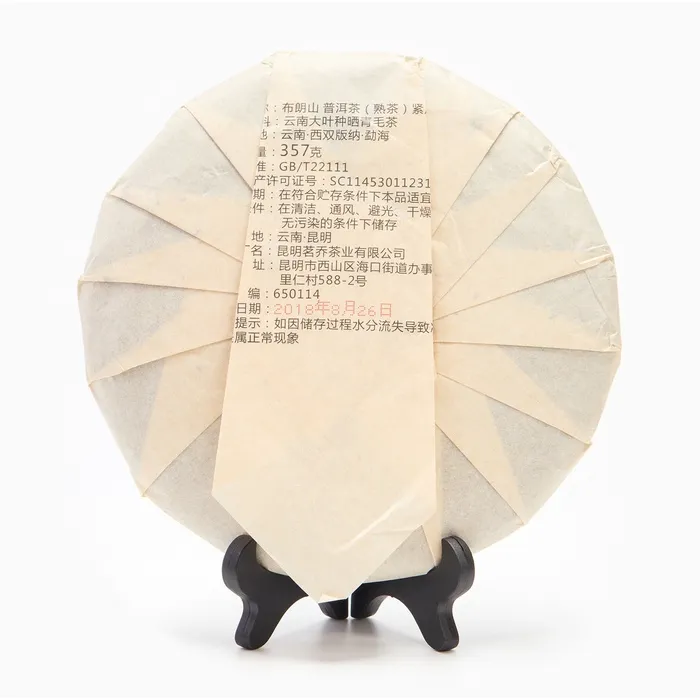 ：布朗山 普洱茶（熟茶）紧
：云南大叶种晒青毛茶
：云南·西双版纳·勐海
量：357克
准：GB/T22111
产许可证号：SC11453011231
期：在符合贮存条件下本品适宜
件：在清洁、通风、避光、干燥
无污染的条件下储存
地：云南·昆明
名：昆明茗乔茶业有限公司
址：昆明市西山区海口街道办事
里仁村588-2号
编：650114
日期：2018年8月26日
提示：如因储存过程水分流失导致
属正常现象